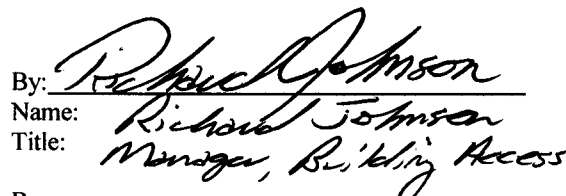 By: Richard Johnson
Name: Richard Johnson
Title: Manager, Building Access